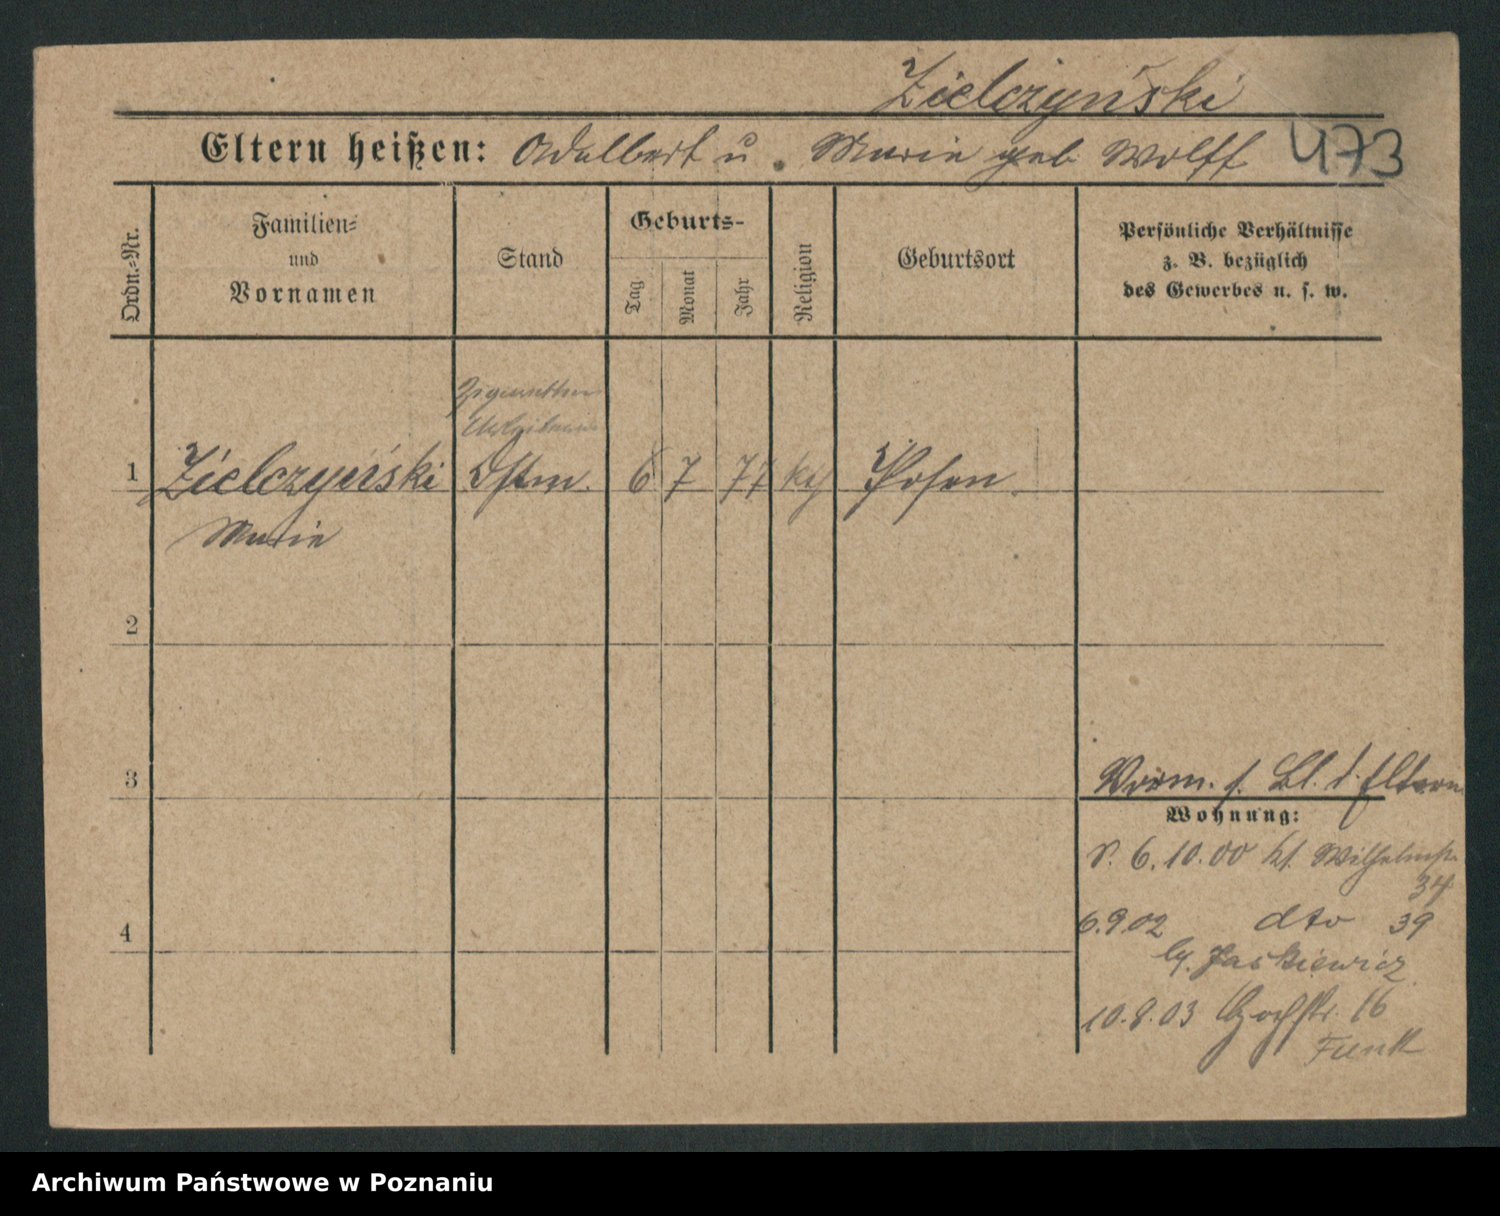 Zielczyński
Eltern heißen: Adalbert u. Marie geb. Wolff 473
Ordn.-Nr.
Familien-
und
Vornamen
Stand
Geburts-
Tag
Monat
Jahr
Religion
Geburtsort
Persönliche Verhältnisse
z. B. bezüglich
des Gewerbes u. s. w.
1 Zielczyński 6 7 77 kth Posen
Marie
2
3
Vorm. s. Bl. d. Eltern
Wohnung:
6.10.00 Wilhelmstr.
34
4
6.9.02 dto 39
Jaskiewicz
10.8.03 16
Funk
Archiwum Państwowe w Poznaniu